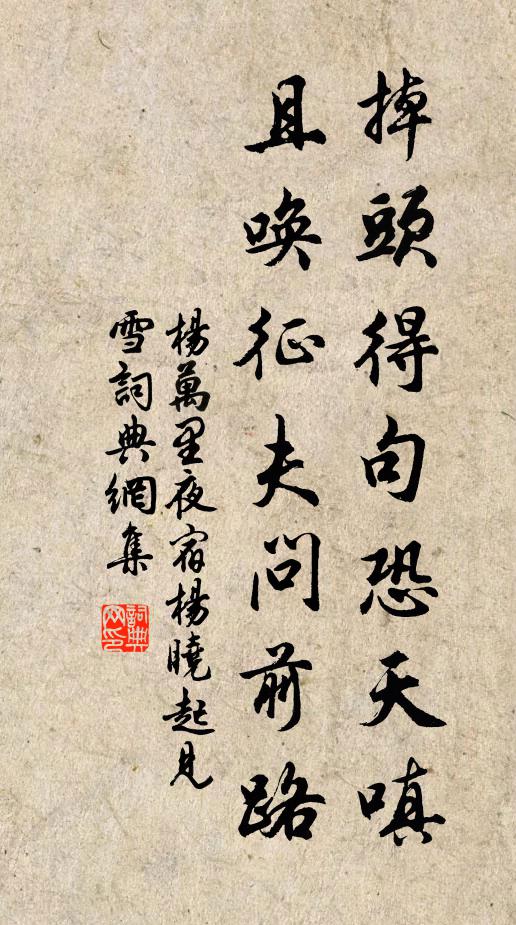 掉頭得句恐天嗔
且喚征夫問前路
楊萬里夜宿楊曉起見
雪詞典網集
詞典網印